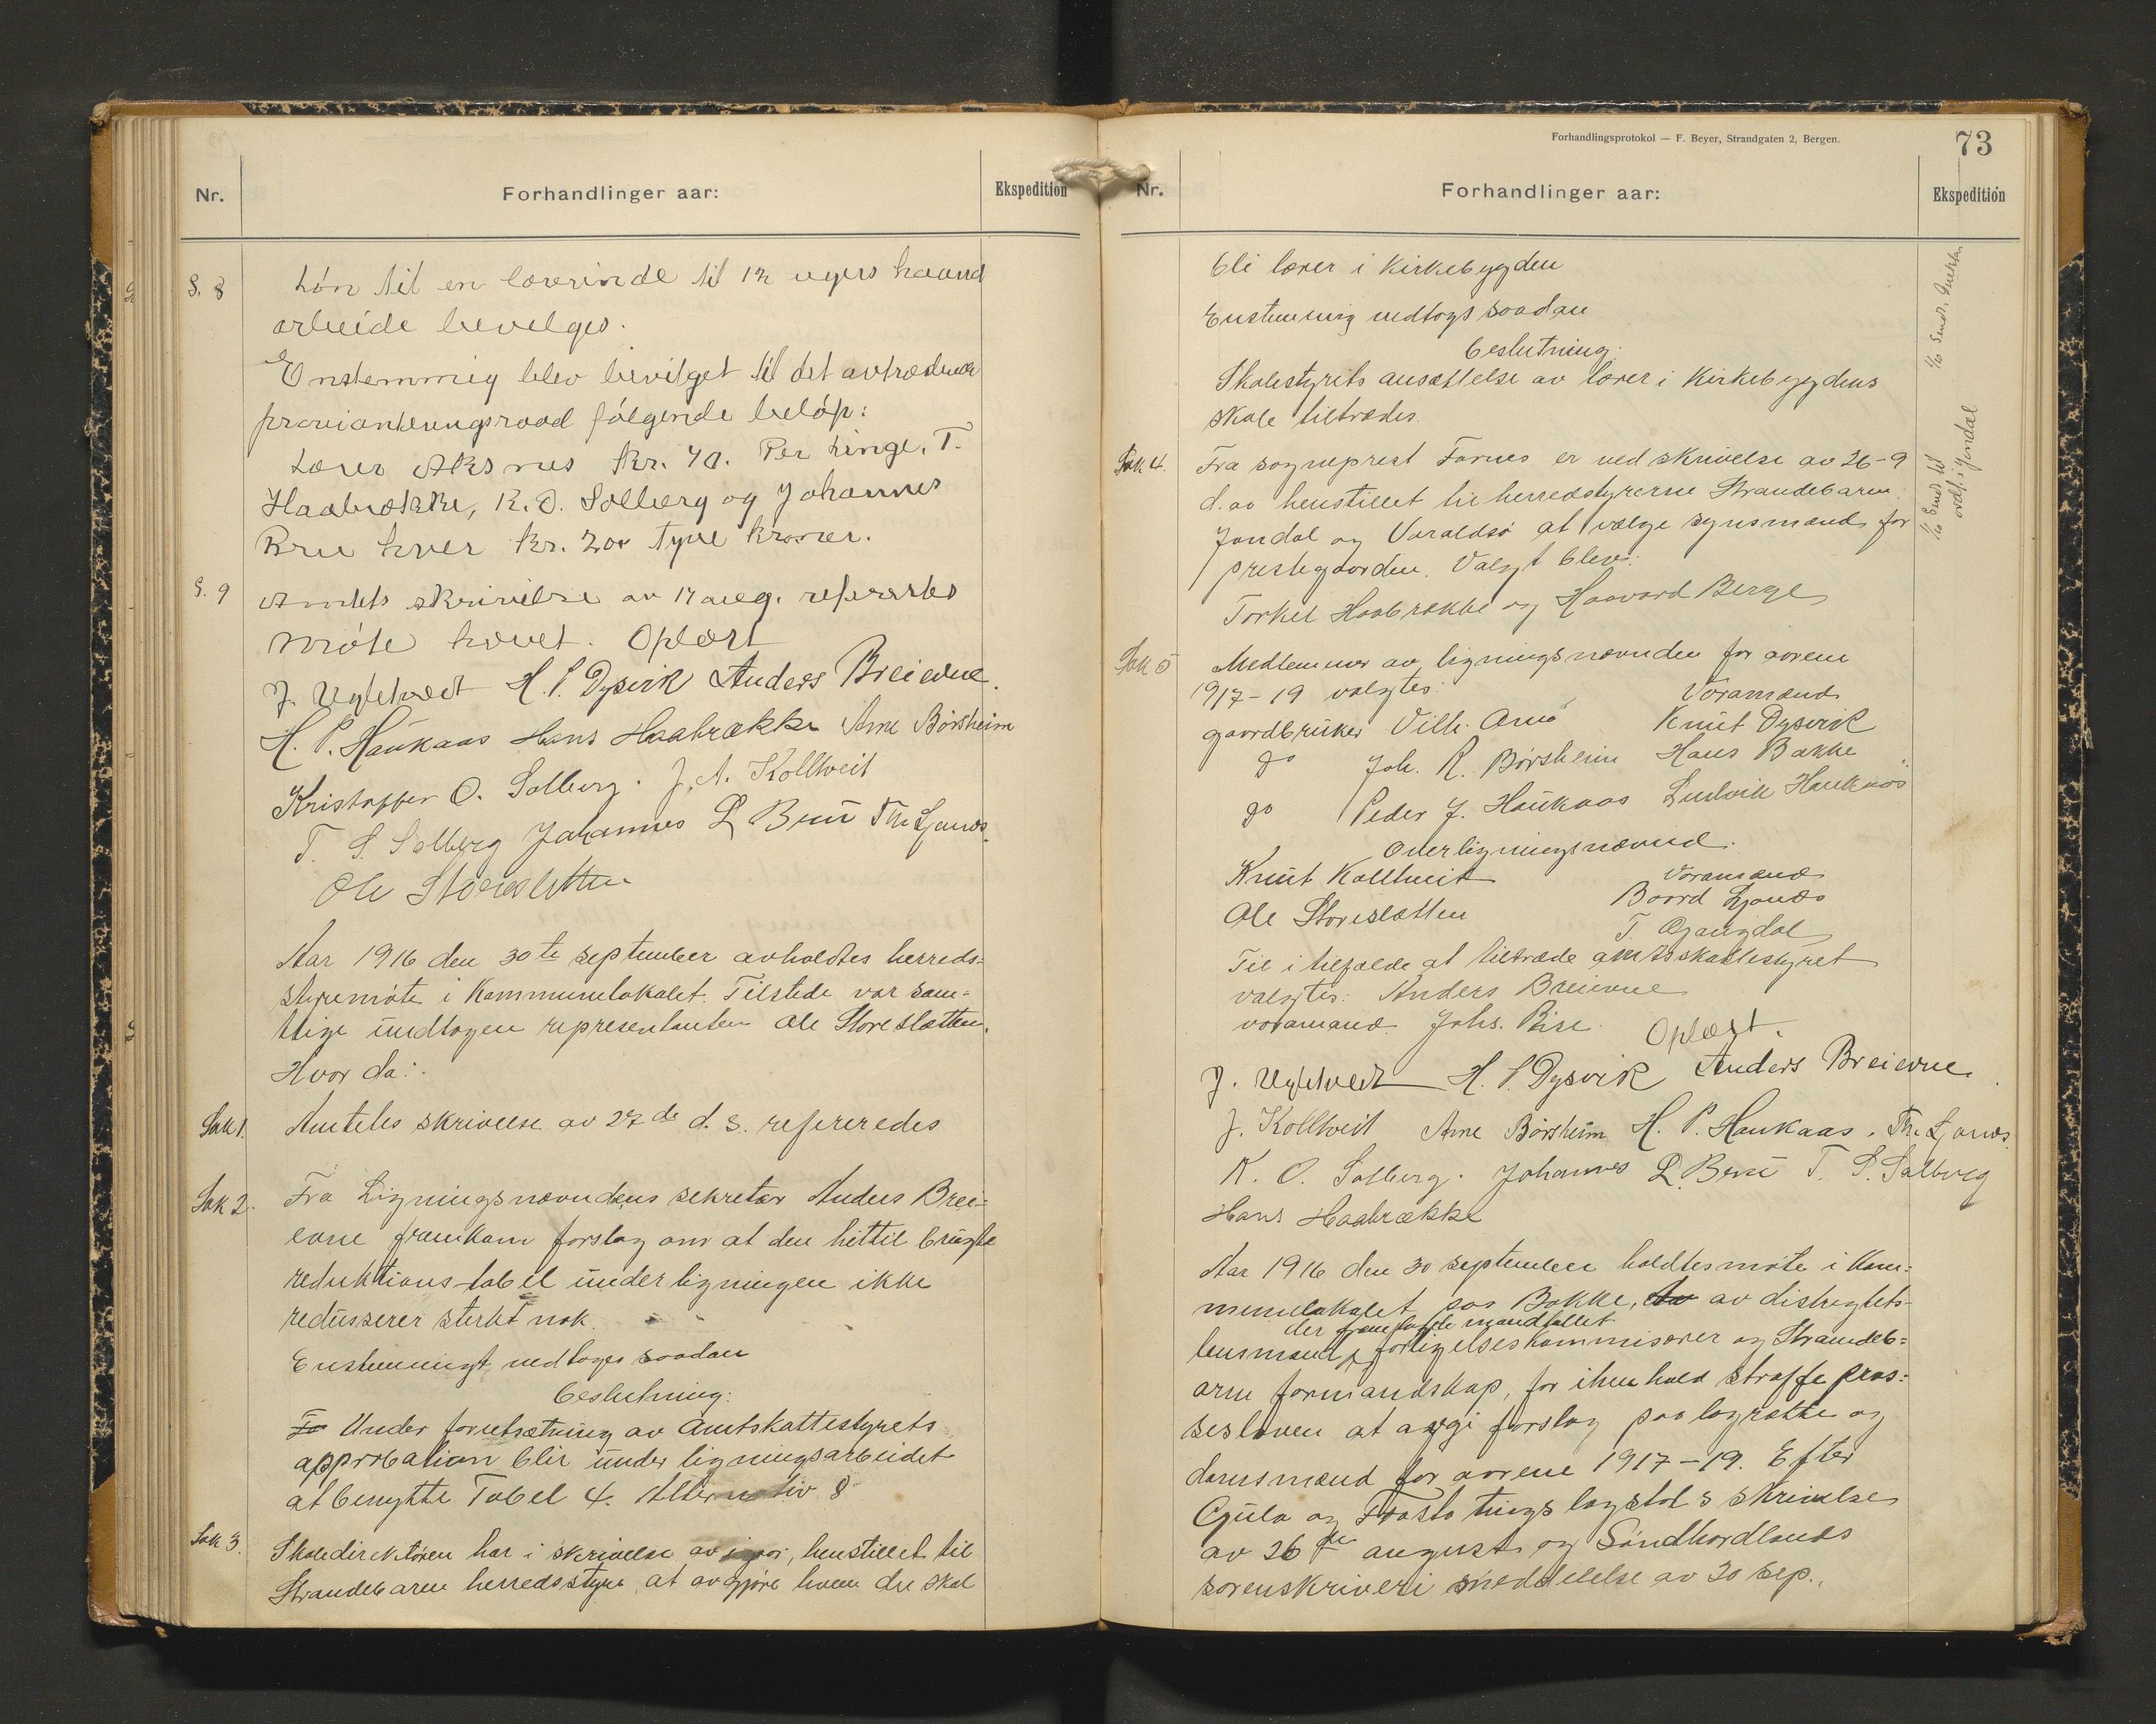 Nr.
Forhandlinger aar:
Ekspedition
S. 8
Lön til en lærerinde til 12 ugers haand
arbeide bevelges.
Enstemmig blev bevilget til det avtrædende
provianteringsraad fölgende belöp:
Lærer Aksnes kr. 40. Per Linge, T.
Haabrække, K. O. Solberg og Johannes
Bru hver kr. 20 tyve kroner.
S. 9
Amtets skrivelse av 17 aug. refereertes
Möte hævet. Oplæst
J. Uglehvedt H. S. Dysvik Anders Breievne.
H. P. Haukaas Hans Haabrække Arne Börsheim
Kristoffer O. Solberg. J. A. Kolltveit
T. S. Solberg Johannes L Bru Th. Ljones.
Ole Storesletten
Aar 1916 den 30te september avholdtes herreds-
styremöte i Kommunelokalet. Tilstede var sam-
tlige undtagen representanten Ole Storeslætten.
Hvor da:
Sak 1.
Amtets skrivelse av 27de d. s. refereredes
Sak 2.
Fra Ligningsnævndens sekretær Anders Brei-
evne fremkom forslag om at den hittil brugte
reduktions-tabel under ligningen ikke
redusserer sterkt nok.
Enstemmigt vedtoges saadan
beslutning:
Under forutsætning av Amtskattestyrets
approbation blir under ligningsarbeidet
at benytte Tabel 4. Alternativ 8
Sak 3.
Skoledirektören har i skrivelse av igaar, henstillet til
Strandebarm herredsstyre, at avgjöre hvem der skal
Forhandlingsprotokol — F. Beyer, Strandgaten 2, Bergen.
73
Nr.
Forhandlinger aar:
Ekspedition
bli lærer i Kirkebygden
Enstemmig vedtogs saadan
beslutning:
Skolestyrets ansættelse av lærer i Kirkebygdens
skole tiltrædes.
Sak 4.
Fra sogneprest Fornes er ved skrivelse av 26-9
d. av henstillet til herredstyrerne Strandebarm
Jondal og Varaldsö at vælge synsmænd for
prestegaarden. Valgt blev:
Torkel Haabrække og Haavard Berge
1/10 Sendt til
ordf. i Jondal
Sak 5
Medlemmer av ligningsnævnden for aarene
1917-19 valgtes: Varamænd
gaardbruker Vilh. Omö Knut Dysvik
do Joh. R. Börsheim Hans Bakke
do Peder J. Haukaas Ludvik Haukaas
Overligningsnævnd.
Knut Kolltveit Varamænd
Ole Storeslætten Baard Ljones
T. Øgangdal
Til i tilfælde at tiltræde amtsskattestyret
valgtes: Anders Breievne
varamand Johs. Bru. Oplæst.
J. Uglehvedt H. S. Dysvik Anders Breievne.
J. Kolltveit Arne Börsheim H. P. Haukaas. Th. Ljones
K. O. Solberg. Johannes L. Bru T. S. Solberg
Hans Haabrække
Aar 1916 den 30 september holdtes möte i Kom-
munelokalet paa Bakke, av distrigtets-
der fremlagde mandtallet
lensmand, forligelseskommisærer og Strandeb-
arm formandskap, for ihenhold straffe pros-
sesloven at avgi forslag paa lagrette og
domsmænd for aarene 1917-19. Efter
Gula og Frostatings lagstols skrivelse
av 26de august og Söndhordlands
sorenskriveri meddelelse av 30 sep.,